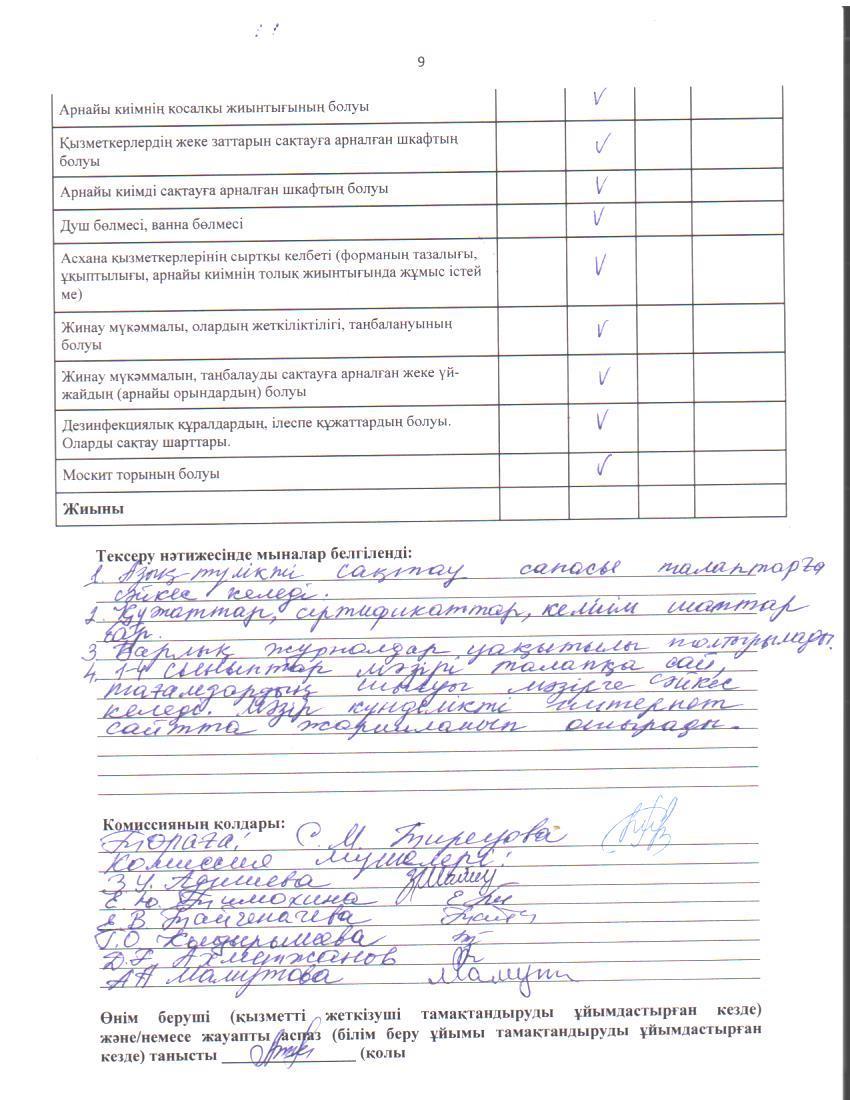 9
Арнайы киімнің қосалқы жиынтығының болуы
Қызметкерлердің жеке заттарын сақтауға арналған шкафтың
болуы
Арнайы киімді сақтауға арналған шкафтың болуы
Душ бөлмесі, ванна бөлмесі
Асхана қызметкерлерінің сыртқы келбеті (форманың тазалығы,
ұқыптылығы, арнайы киімнің толық жиынтығында жұмыс істей
ме)
Жинау мүкәммалы, олардың жеткіліктілігі, таңбалануының
болуы
Жинау мүкәммалын, таңбалауды сақтауға арналған жеке үй-
жайдың (арнайы орындардың) болуы
Дезинфекциялық құралдардың, ілеспе құжаттардың болуы.
Оларды сақтау шарттары.
Москит торының болуы
Жиыны
Тексеру нәтижесінде мыналар белгіленді:
1. Азық-түлікті сақтау сапасы талаптарға
сәйкес келеді.
2. Құжаттар, сертификаттар, келісім шарттар
бар.
3. Барлық журналдар уақытылы толтырылады.
4. 1-4 сыныптар мәзірі талапқа сай,
тағамдардың шығуы мәзірге сәйкес
келеді. Мәзір күнделікті интернет
сайтта жарияланып отырады.
Комиссияның қолдары:
Төраға: С.М.
Комиссия мүшелері:
З.У.
Е.Ю. Тимохина
Е.В. Тайченачева
Г.О.
Д.Е. Ахметжанов
А.П. Мамутова
Өнім беруші (қызметті жеткізуші тамақтандыруды ұйымдастырған кезде)
және/немесе жауапты аспаз (білім беру ұйымы тамақтандыруды ұйымдастырған
кезде) танысты ______________ (қолы